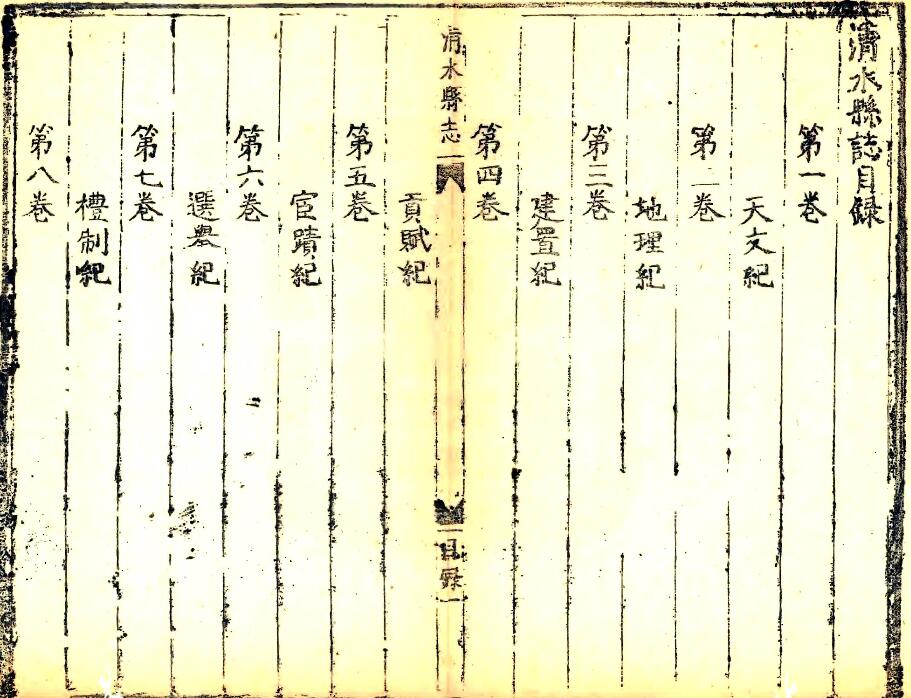 清水縣誌目録
第一卷
天文紀
第二卷
地理紀
第三卷
建置紀
第四卷
清水縣志
目録一
貢賦紀
第五卷
宦蹟紀
第六卷
選舉紀
第七卷
禮制紀
第八卷